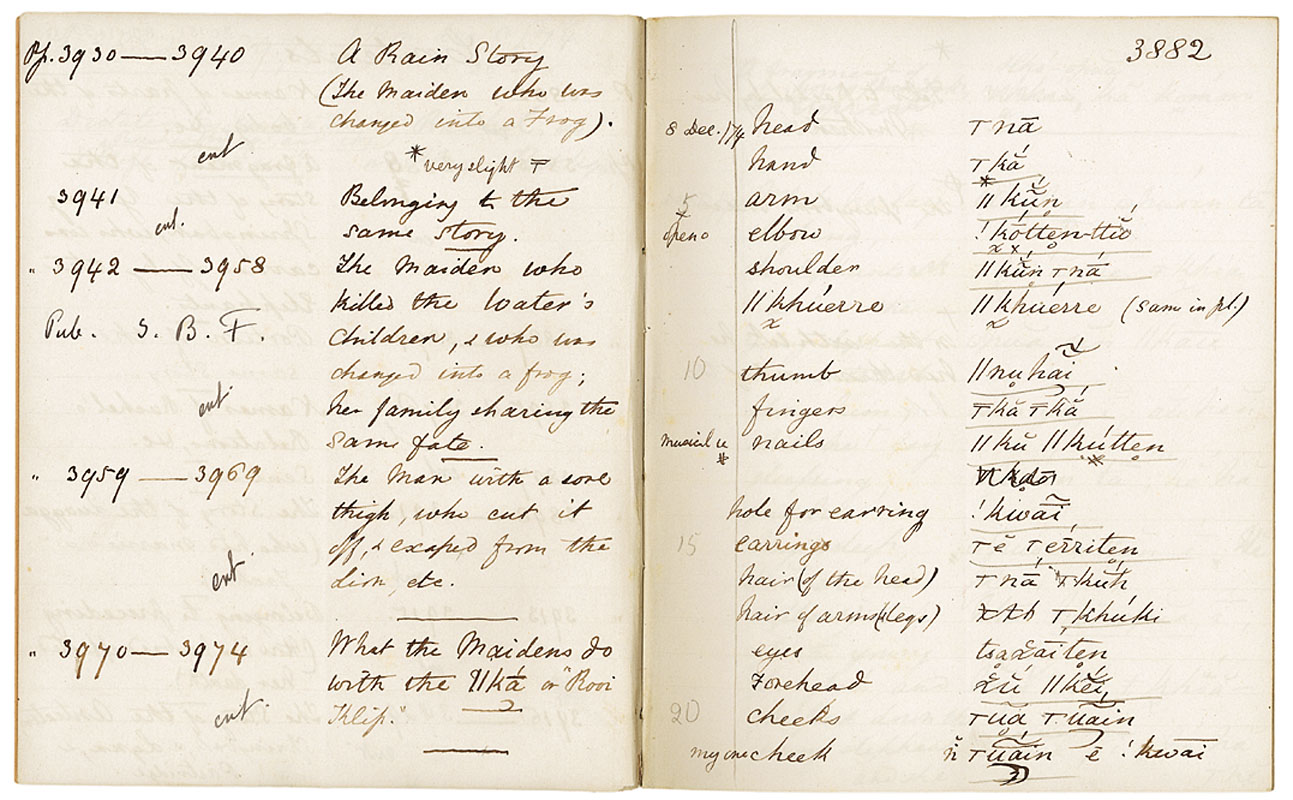 Pp. 3930 — 3940 A Rain Story
(The Maiden who was
changed into a Frog).
ent
* very slight ⊤
3941 Belonging to the
ent. same story.
" 3942 — 3958 The Maiden who
killed the Water's
Pub. S. B. F. children, & who was
changed into a frog;
ent her family sharing the
same fate.
" 3959 — 3969 The Man with a sore
thigh, who cut it
off, & escaped from the
ent Lion, etc.
" 3970 — 3974 What the Maidens do
with the ǁká or "Rooi
ent. Klip."
3882
8 Dec. /74 head ⊤ nā
hand ⊤ kă
5 arm ǁkŭn
elbow !kótten-ttŭ
shoulder ǁkŭn ⊤nā
ǁkhúerre ǁkhúerre (same in pl.)
10 thumb ǁnuhăi
fingers ⊤kă ⊤kă
nails ǁkŭ ǁkútten
hole for earring !kwāĩ
15 earrings ⊤ĕ ⊤érriten
hair (of the head) ⊤nā ⊤kŭḱ
hair of arms (& legs) ⊤khúki
eyes tsaxáiten
forehead xŭ ǁkĕí
20 cheeks ⊤ŭa ⊤uáin
my one cheek ň ⊤uáin ē !kwāi